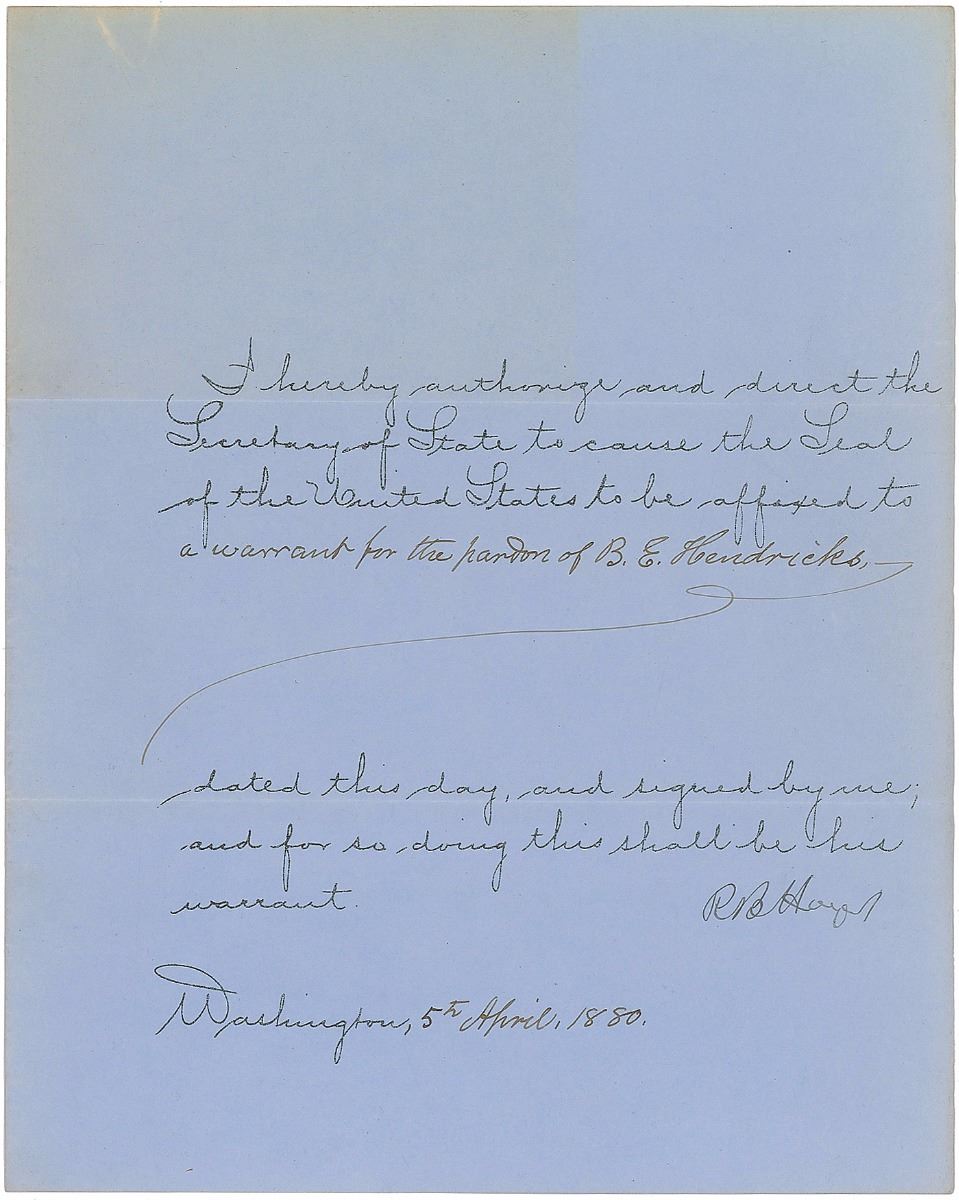 I hereby authorize and direct the
Secretary of State to cause the Seal
of the United States to be affixed to
a warrant for the pardon of B. E. Hendricks.
dated this day, and signed by me;
and for so doing this shall be his
warrant.
R B Hayes
Washington, 5th April, 1880.